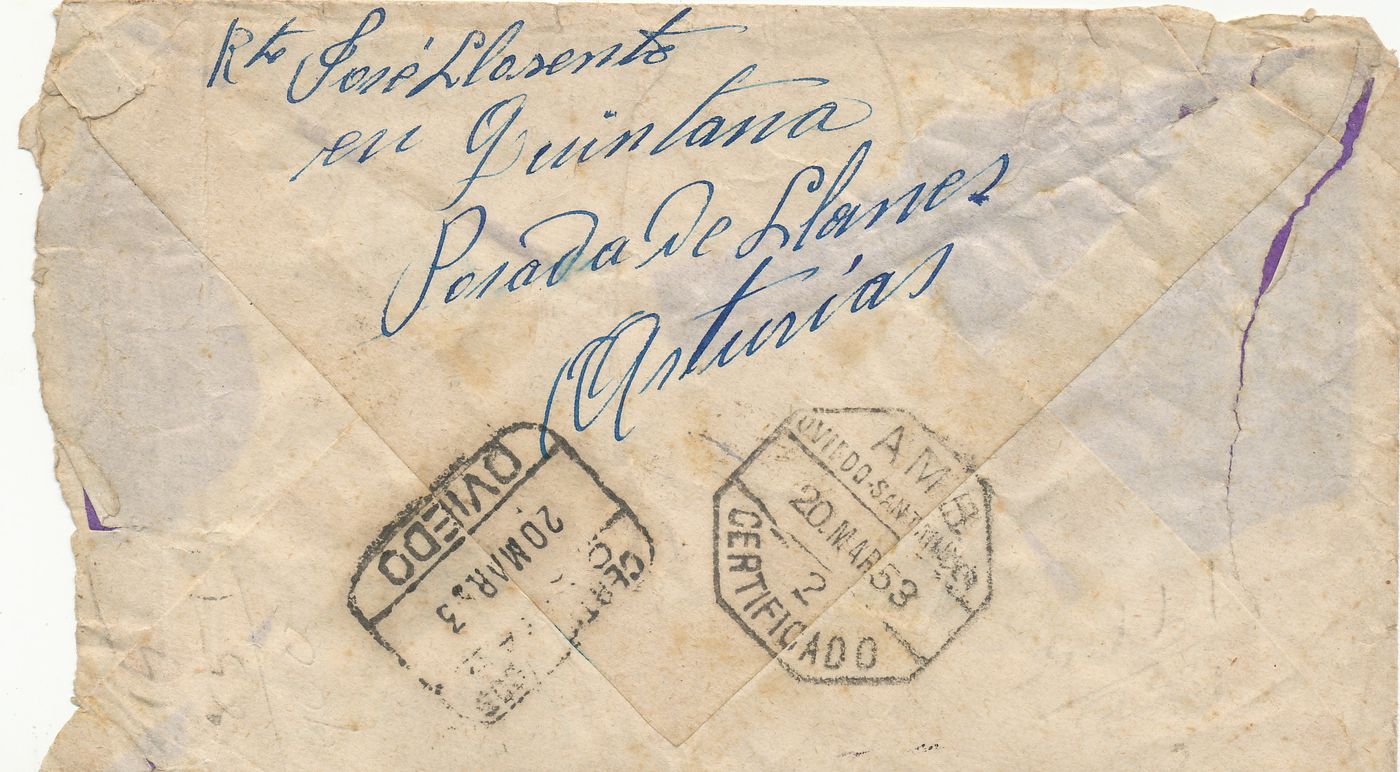 Rte José Llorente
en Quintana
Posada de Llanes
Asturias
OVIEDO
20 MAR 53
AMB.
OVIEDO-SANTANDER
20.MAR 53
2
CERTIFICADO